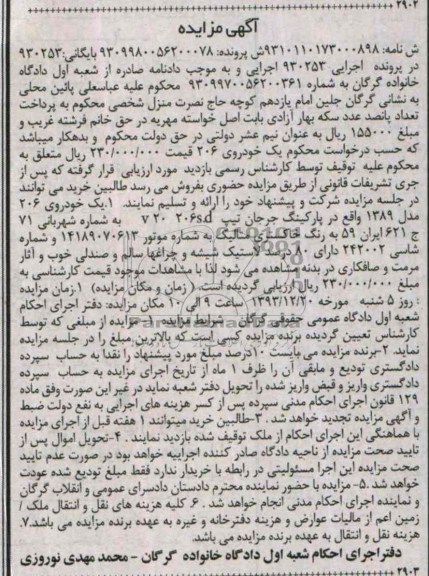 ۲۹۰۲
آگهی مزایده
ش نامه: ۹۳۱۰۱۱۰۱۷۳۰۰۰۸۹۸ ش پرونده: ۹۳۰۹۹۸۰۰۵۶۲۰۰۰۷۸ بایگانی: ۹۳۰۲۵۳
در پرونده اجرایی ۹۳۰۲۵۳ اجرایی و به موجب دادنامه صادره از شعبه اول دادگاه
خانواده گرگان به شماره ۹۳۰۹۹۷۰۰۵۶۲۰۰۳۶۱ محکوم علیه عباسعلی پائین محلی
به نشانی گرگان جلین امام یازدهم کوچه حاج نصرت منزل شخصی محکوم به پرداخت
تعداد پانصد عدد سکه بهار آزادی بابت اصل خواسته مهریه در حق خانم فرشته غریب و
مبلغ ۱۵۵۰۰۰ ریال به عنوان نیم عشر دولتی در حق دولت محکوم و بدهکار میباشد
که حسب درخواست محکوم یک خودروی ۲۰۶ قیمت ۲۳۰/۰۰۰/۰۰۰ ریال متعلق به
محکوم علیه توقیف توسط کارشناس رسمی بازدید مورد ارزیابی قرار گرفته که پس از
جری تشریفات قانونی از طریق مزایده حضوری بفروش می رسد طالبین خرید می توانند
در جلسه مزایده شرکت و پیشنهاد خود را ارائه و تسلیم نمایند. ۱.یک خودروی ۲۰۶
مدل ۱۳۸۹ واقع در پارکینگ جرجان تیپ ۲۰۶s.d ۷۲۰ به شماره شهربانی ۷۱
ج ۶۲۱ ایران ۵۹ به رنگ خاکستری متالیک به شماره موتور ۱۴۱۸۹۰۷۰۶۱۳ و شماره
شاسی ۲۴۲۰۰۲ دارای ۸۰ درصد لاستیک شیشه و چراغها سالم و صندلی خوب و آثار
مرمت و صافکاری در بدنه مشاهده می شود لذا با مشاهدات موجود قیمت کارشناسی به
مبلغ ۲۳۰/۰۰۰/۰۰۰ ریال ارزیابی گردیده است. (زمان و مکان مزایده) ۱.زمان مزایده
: روز ۵ شنبه مورخه ۱۳۹۳/۱۲/۲۰ ساعت ۹ الی ۱۰ مکان مزایده: دفتر اجرای احکام
شعبه اول دادگاه عمومی حقوقی گرگان شرایط مزایده ۱- مزایده از مبلغی که توسط
کارشناس تعیین گردیده برنده مزایده کسی است که بالاترین مبلغ را در جلسه مزایده
نماید. ۲-برنده مزایده می بایست ۱۰درصد مبلغ مورد پیشنهاد را نقدا به حساب سپرده
دادگستری تودیع و مابقی آن را ظرف ۱ ماه از تاریخ اجرای مزایده به حساب سپرده
دادگستری واریز و قبض واریز شده را تحویل دفتر شعبه نماید در غیر این صورت وفق ماده
۱۲۹ قانون اجرای احکام مدنی سپرده پس از کسر هزینه های اجرایی به نفع دولت ضبط
و آگهی مزایده تجدید خواهد شد. ۳-طالبین خرید میتوانند ۱ هفته قبل از اجرای مزایده
با هماهنگی این اجرای احکام از ملک توقیف شده بازدید نمایند. ۴-تحویل اموال پس از
تایید صحت مزایده از ناحیه دادگاه صادر کننده اجراییه خواهد بود در صورت عدم تایید
صحت مزایده این اجرا مسئولیتی در رابطه با خریدار ندارد فقط مبلغ تودیع شده عودت
خواهد شد.۵- مزایده با حضور نماینده محترم دادستان دادسرای عمومی و انقلاب گرگان
و نماینده اجرای احکام مدنی انجام خواهد شد. ۶. کلیه هزینه های نقل و انتقال ملک /
زمین اعم از مالیات عوارض و هزینه دفترخانه و غیره به عهده برنده مزایده می باشد.۷.
هزینه نقل و انتقال به عهده برنده مزایده می باشد.
دفتراجرای احکام شعبه اول دادگاه خانواده گرگان - محمد مهدی نوروزی
۲۹۰۳